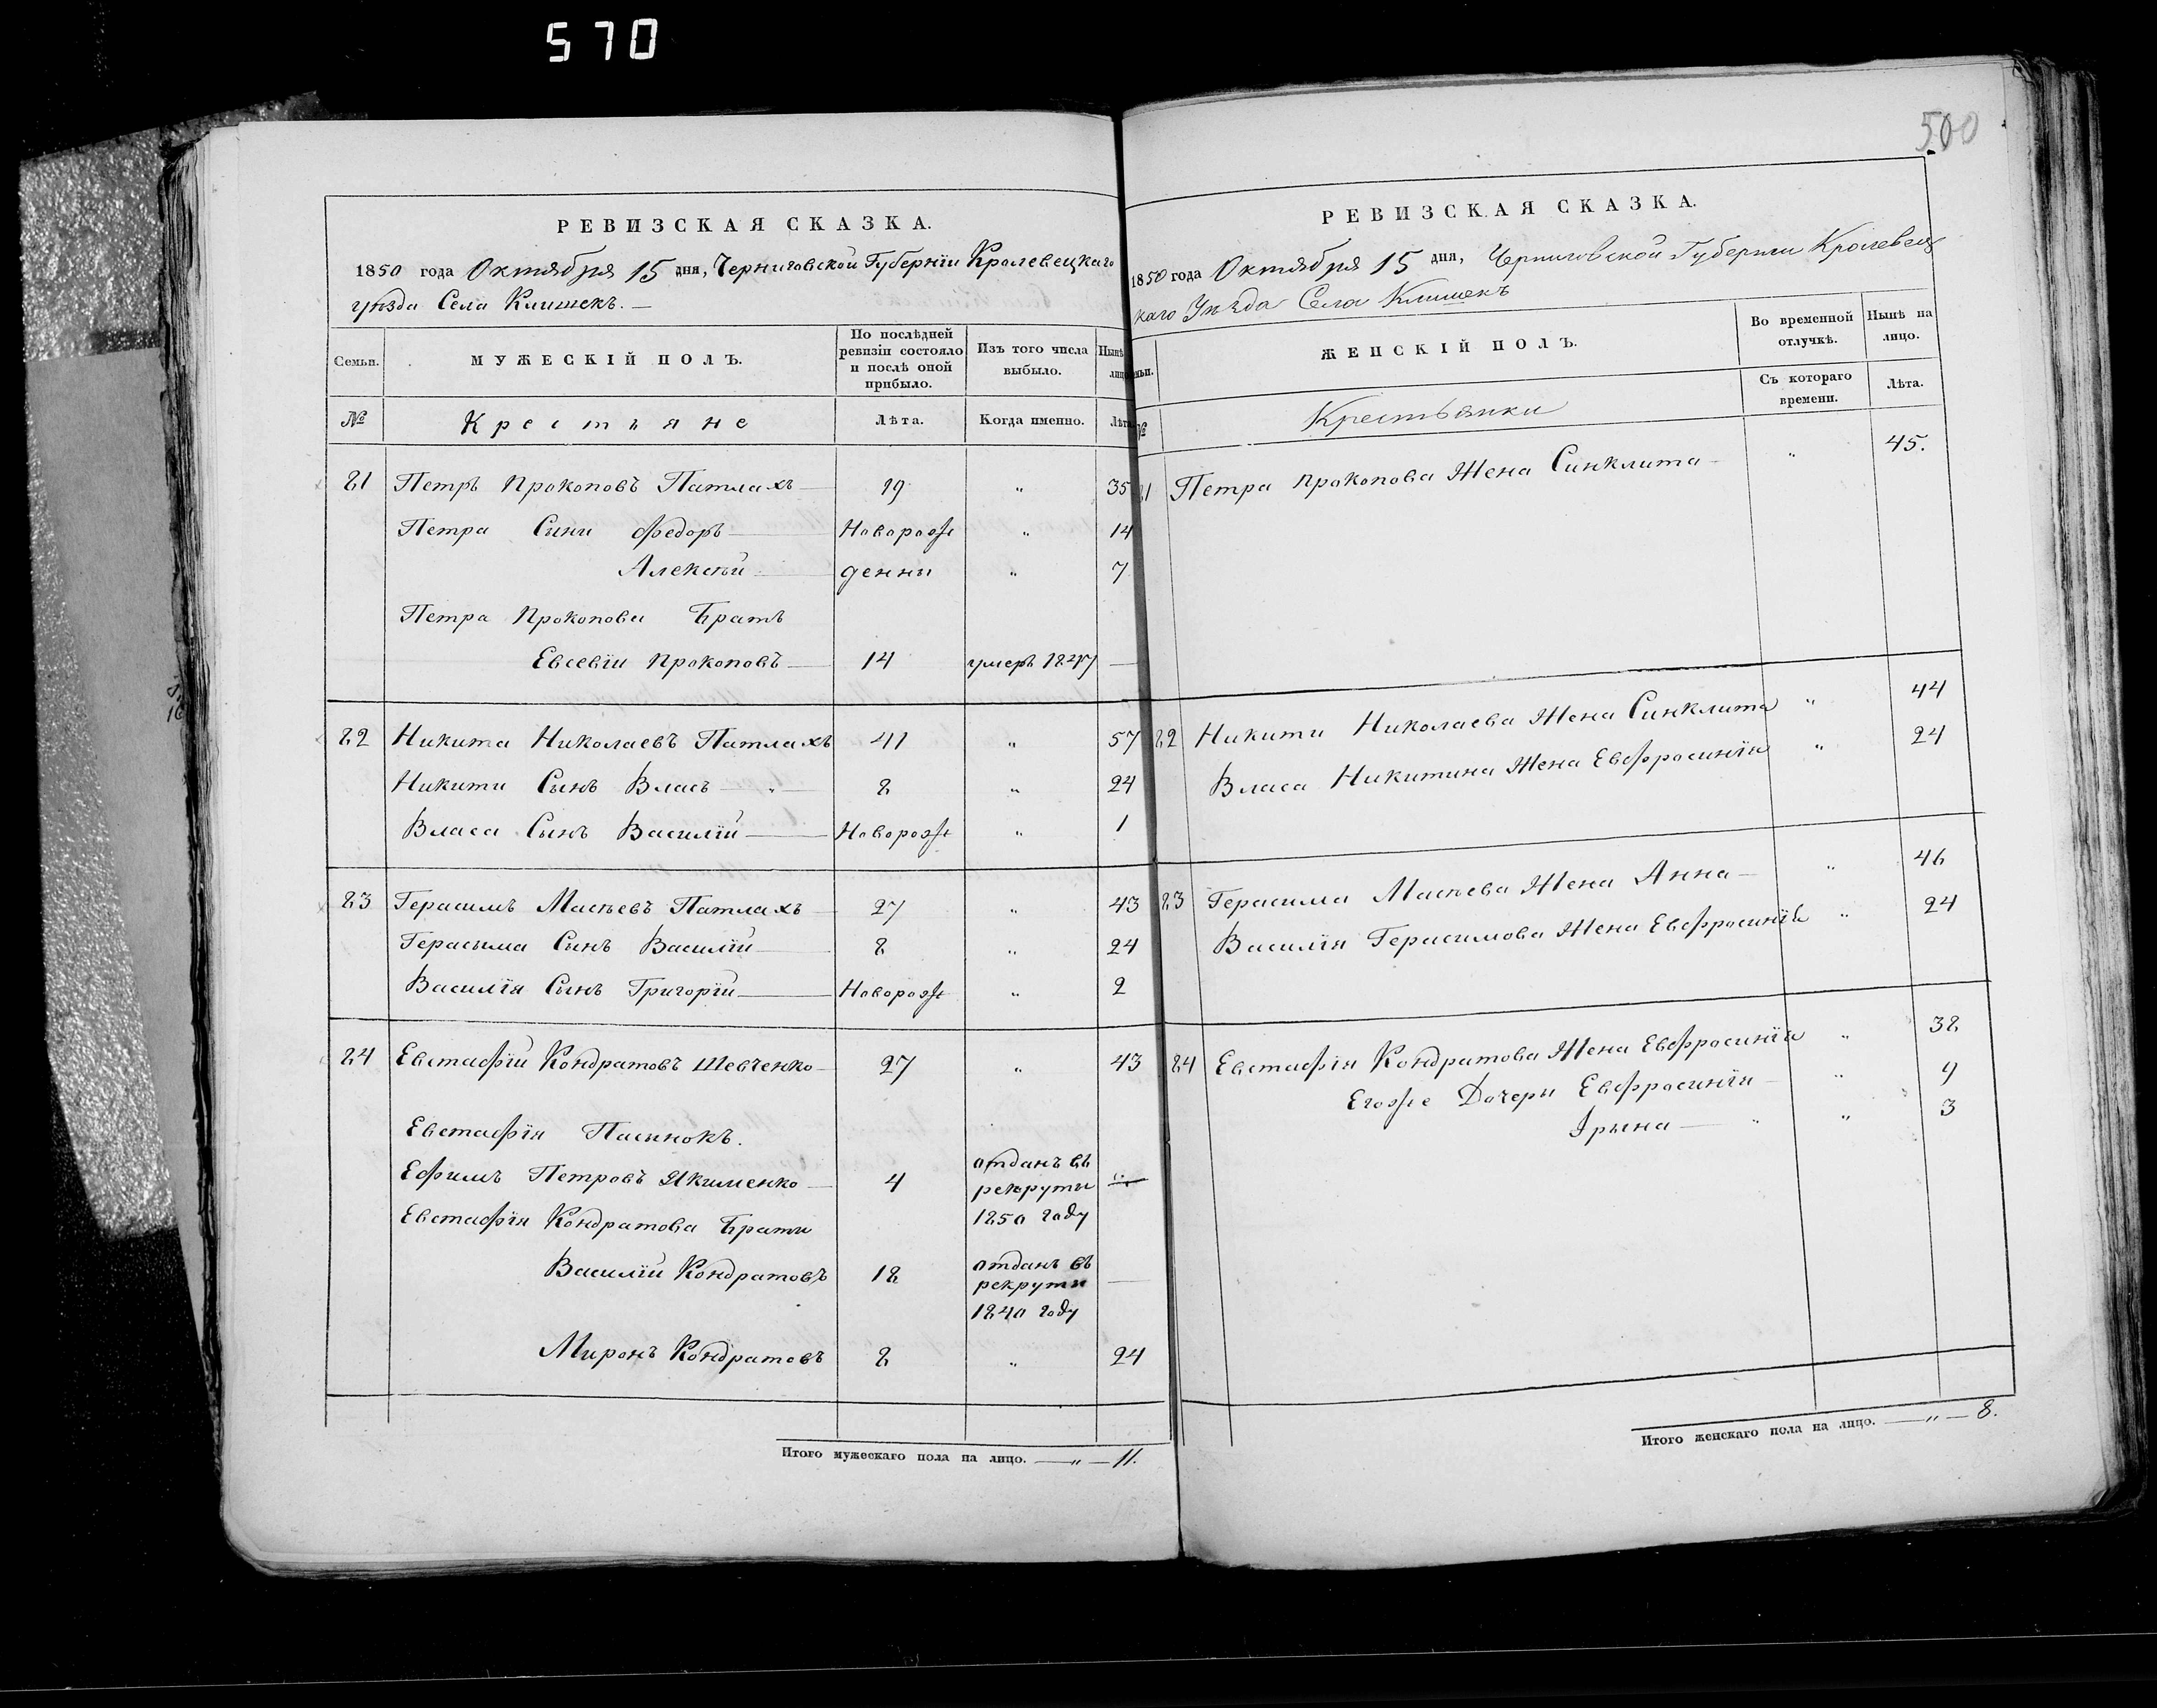 570
500
РЕВИЗСКАЯ СКАЗКА.
1850 года Октября 15 дня, Черниговской Губернїи Кролевецкаго
уѣзда Села Клишекъ. —
Семьи. МУЖЕСКІЙ ПОЛЪ. По послѣдней ревизіи состояло и послѣ оной прибыло. Изъ того числа выбыло. Нынѣ лицо
№ Крестьяне Лѣта. Когда именно. Лѣта
81 Петръ Прокоповъ Патлахъ — 19 „ 35
Петра Сыни Федоръ — Новорож „ 14
Алексѣй — денни „ 7
Петра Прокопова Братъ
Евсевїи Прокоповъ — 14 умеръ 1847 —
82 Никита Николаевъ Патлахъ 41 „ 57
Никити Сынъ Власъ — „ — 8 „ 24
Власа Сынъ Василїй — Новорож „ 1
83 Герасимъ Масѣевъ Патлахъ — 27 „ 43
Герасыма Сынъ Василїй — 8 „ 24
Василїя Сынъ Григорїй — Новорож „ 2
84 Евстафїй Кондратовъ Шевченко — 27 „ 43
Евстафїя Пасынокъ.
Ефимъ Петровъ Якименко — 4 отданъ въ рекруты 1850 году —
Евстафїя Кондратова Брати
Василїй Кондратовъ 18 отданъ въ рекруты 1840 году —
Миронъ Кондратовъ 8 „ 24
Итого мужескаго пола на лицо. — „ — 11.
РЕВИЗСКАЯ СКАЗКА.
1850 года Октября 15 дня, Черниговской Губернїи Кролевец
каго Уѣзда Села Клишекъ
мьи. ЖЕНСКІЙ ПОЛЪ. Во временной отлучкѣ. Нынѣ на лицо.
№ Крестьянки Съ котораго времени. Лѣта.
81 Петра Прокопова Жена Синклита — „ 45.
82 Никити Николаева Жена Синклита „ 44
Власа Никитина Жена Евфросинїя „ 24
83 Герасима Масѣева Жена Анна — „ 46
Василїя Герасимова Жена Евфросинїя „ 24
84 Евстафїя Кондратова Жена Евфросинїя „ 38
Егоже Дочеры Евфросинїя — „ 9
Ірына — „ „ 3
Итого женскаго пола на лицо. — „ — 8.